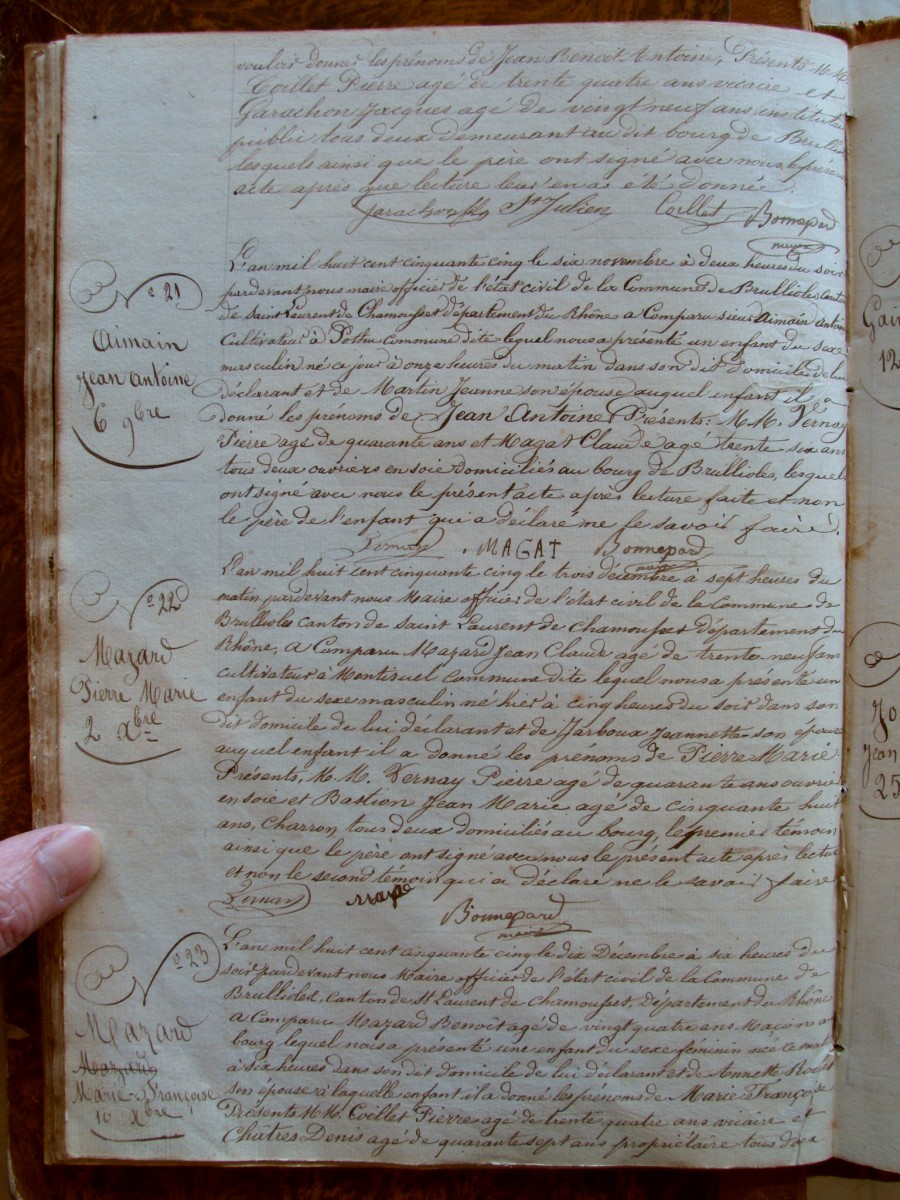 vouloir donner les prénoms de Jean Benoit Antoine, Présents M.M.
Coillet Pierre agé de trente quatre ans vicaire et
Garachon Jacques agé de vingt neuf ans instituteur
public tous deux demeurant au dit bourg de Brullioles
lesquels ainsi que le père ont signé avec nous le présent
acte après que lecture leur en a été donnée.
Garachon St Julien Coillet Bonnepard
maire
L'an mil huit cent cinquante cinq le six novembre à deux heures du soir
pardevant nous maire officier de l'état civil de la Commune de Brullioles canton
de saint Laurent de Chamousset département du Rhône a Comparu sieur Aimain Antoine
Cultivateur à Pothu Commune dite lequel nous a présenté un enfant du sexe
masculin né ce jour à onze heures du matin dans son dit domicile de lui
déclarant et de Martin Jeanne son épouse auquel enfant il a
donné les prénoms de Jean Antoine Présents: M.M. Vernay
Pierre agé de quarante ans et Magat Claude agé trente six ans
tous deux ouvriers en soie domiciliés au bourg de Brullioles, lesquels
ont signé avec nous le présent acte après lecture faite et non
le père de l'enfant qui a déclaré ne le savoir faire.
Vernay MAGAT Bonnepard
maire
L'an mil huit cent cinquante cinq le trois décembre à sept heures du
matin pardevant nous Maire officier de l'état civil de la Commune de
Brullioles canton de saint Laurent de Chamousset Département du
Rhône, a Comparu Mazard Jean Claude agé de trente neuf ans
cultivateur à Montisuel Commune dite lequel nous a présenté un
enfant du sexe masculin né hier à cinq heures du soir dans son
dit domicile de lui déclarant et de Jarboux Jeannette son épouse
auquel enfant il a donné les prénoms de Pierre Marie
Présents, M.M. Vernay Pierre agé de quarante ans ouvrier
en soie et Bastion Jean Marie agé de cinquante huit
ans, Charron tous deux domiciliés au bourg, le premier témoin
ainsi que le père ont signé avec nous le présent acte après lecture
et non le second témoin qui a déclaré ne le savoir faire
Vernay
Bonnepard
maire
L'an mil huit cent cinquante cinq le dix Décembre à six heures du
soir pardevant nous Maire officier de l'état civil de la Commune de
Brullioles, Canton de St Laurent de Chamousset, Département du Rhône
a Comparu Mazard Benoît agé de vingt quatre ans Maçon au
bourg lequel nous a présenté une enfant du sexe féminin née ce matin
à six heures dans son dit domicile de lui déclarant et de Annette
son épouse à laquelle enfant il a donné les prénoms de Marie Françoise
Présents M.M. Coillet Pierre agé de trente quatre ans vicaire et
Chatres Denis agé de quarante sept ans propriétaire tous deux
o 21
Aimain
Jean Antoine
6 9bre
o 22
Mazard
Pierre Marie
2 Xbre
o 23
Mazard
Mazard
Marie Françoise
10 Xbre
12
Jean
25